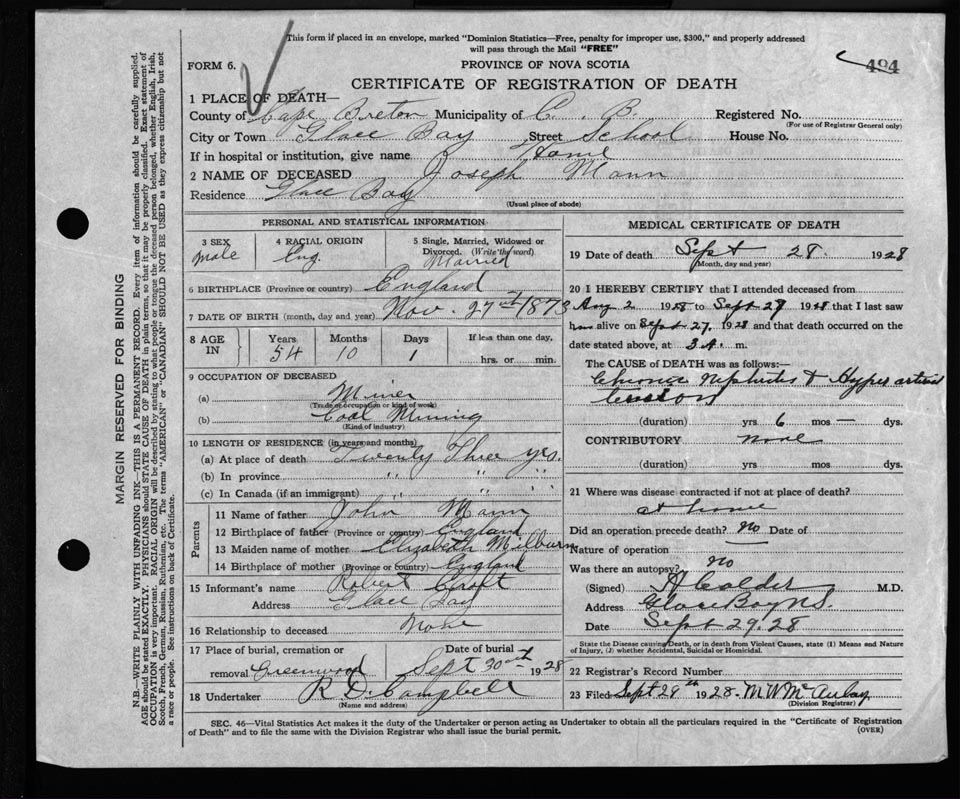 This form if placed in an envelope, marked "Dominion Statistics—Free, penalty for improper use, $300," and properly addressed
will pass through the Mail "FREE"
FORM 6. PROVINCE OF NOVA SCOTIA 494
CERTIFICATE OF REGISTRATION OF DEATH
1 PLACE OF DEATH—
County of Cape Breton Municipality of C. B. Registered No.
(For use of Registrar General only)
City or Town Glace Bay Street School House No.
If in hospital or institution, give name Home
2 NAME OF DECEASED Joseph Mann
Residence Glace Bay
(Usual place of abode)
PERSONAL AND STATISTICAL INFORMATION
3 SEX 4 RACIAL ORIGIN 5 Single, Married, Widowed or
Divorced. (Write the word)
male Eng. Married
6 BIRTHPLACE (Province or country) England
7 DATE OF BIRTH (month, day and year) Nov. 27th 1873
8 AGE IN Years Months Days If less than one day,
54 10 1 hrs. or min.
9 OCCUPATION OF DECEASED
(a) Miner
(Trade or occupation or kind of work)
(b) Coal Mining
(Kind of industry)
10 LENGTH OF RESIDENCE (in years and months)
(a) At place of death Twenty Three yrs.
(b) In province " " "
(c) In Canada (if an immigrant) " "
Parents
11 Name of father John Mann
12 Birthplace of father (Province or country) England
13 Maiden name of mother Elizabeth Milburn
14 Birthplace of mother (Province or country) England
15 Informant's name Robert Croft
Address Glace Bay
16 Relationship to deceased None
17 Place of burial, cremation or Date of burial
removal Greenwood Sept 30th 1928
18 Undertaker R. D. Campbell
(Name and address)
MEDICAL CERTIFICATE OF DEATH
19 Date of death Sept 28. 1928
(Month, day and year)
20 I HEREBY CERTIFY that I attended deceased from
Aug 2 1928 to Sept 27 1928 that I last saw
him alive on Sept 27. 1928 and that death occurred on the
date stated above, at 3 A. m.
The CAUSE of DEATH was as follows:—
Chronic nephritis + Hyper
(duration) yrs 6 mos — dys.
CONTRIBUTORY none
(duration) yrs. mos. dys.
21 Where was disease contracted if not at place of death?
at home
Did an operation precede death? no Date of
Nature of operation —
Was there an autopsy? no
(Signed) A Calder M.D.
Address Glace Bay N.S.
Date Sept 29. 28
State the Disease causing Death, or in death from Violent Causes, state (1) Means and Nature
of Injury, (2) whether Accidental, Suicidal or Homicidal.
22 Registrar's Record Number
23 Filed Sept 29th 1928. M W McAulay
(Division Registrar)
SEC. 46—Vital Statistics Act makes it the duty of the Undertaker or person acting as Undertaker to obtain all the particulars required in the "Certificate of Registration
of Death" and to file the same with the Division Registrar who shall issue the burial permit.
(OVER)
MARGIN RESERVED FOR BINDING
N.B.—WRITE PLAINLY WITH UNFADING INK—THIS IS A PERMANENT RECORD. Every item of information should be carefully supplied.
AGE should be stated EXACTLY. PHYSICIANS should STATE CAUSE OF DEATH in plain terms, so that it may be properly classified. Exact statement of
OCCUPATION is very important. RACIAL ORIGIN will be described by stating to what people or tongue the deceased person belonged, whether English, Irish,
Scotch, French, German, Russian, Ruthenian, etc. The terms "AMERICAN" or "CANADIAN" SHOULD NOT BE USED as they express citizenship but not
a race or people. See instructions on back of Certificate.